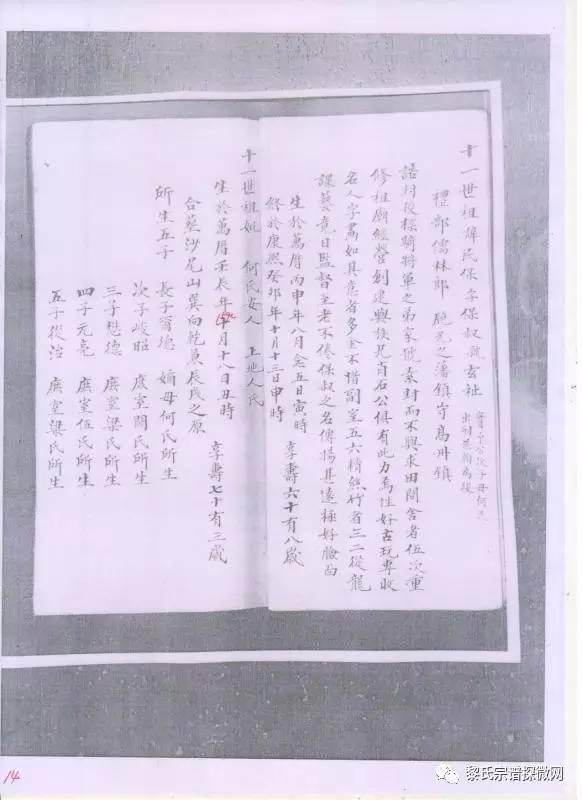 十一世祖諱民保字保叔號玄祉
禮部儒林郎 陞元之潘鎮守高州鎮
諾封後標騎將軍之弟家號素封而不與求田問舍者伍次重
修祖廟經營創建與族兄貞石公俱有此力焉性好古玩專收
名人字畫如其意者多金不惜副室五六精然行者三二從龍
課藝竟日監督主老不倦保叔之名傳揚甚遠極好臉面
生於萬曆丙申年八月念五日寅時
終於康熙癸卯年十月十三日申時
享壽六十有八歲
十一世祖妣 何氏安人 上地人氏
生於萬曆壬辰年十月十八日丑時
1592
享壽七十有三歲
合葬沙尾山巽向乾員辰戌之原
所生五子 長子爾德 嫡母何氏所生
次子峻昭 庶室關氏所生
三子懋德 庶室梁氏所生
四子元亮 庶室伍氏所生
五子從治 庶室梁氏所生
14
黎氏宗譜探微网